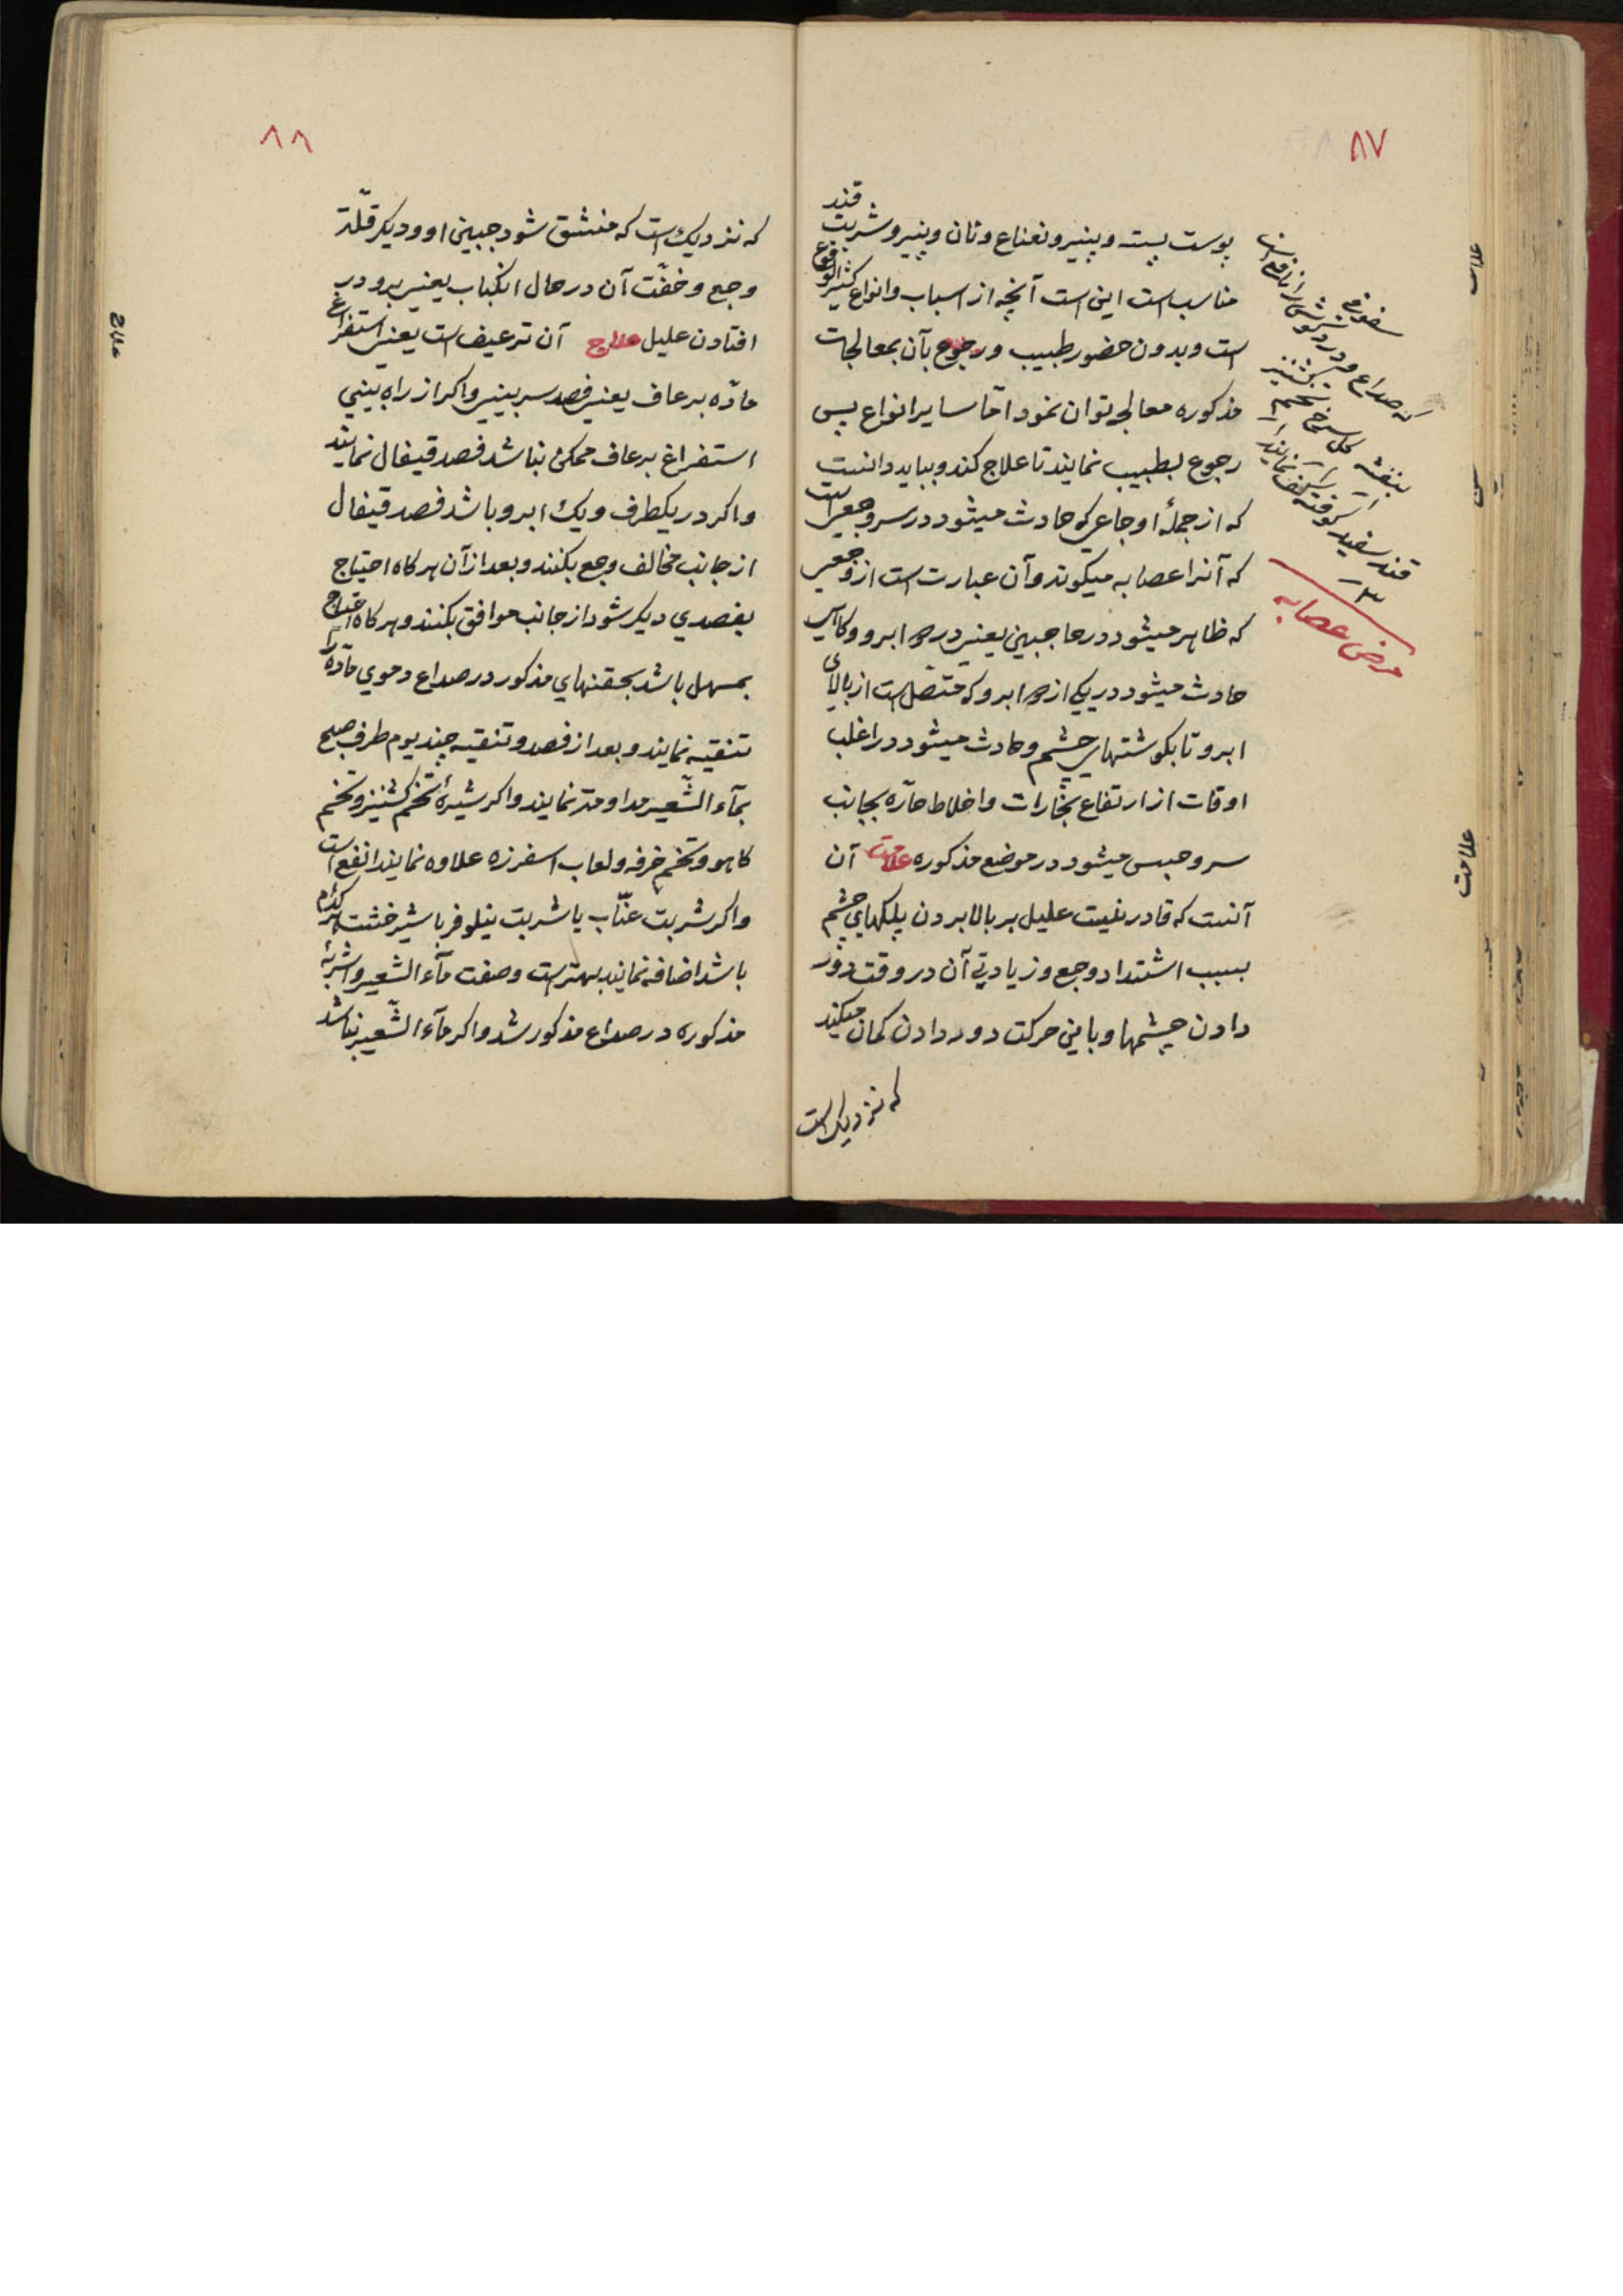 ٨٧
پوست پسته و پنیر و نعناع و نان و پنیر و شربت قند
مناسب است این است آنچه از اسباب و انواع کثیر الوقوع
است و بدون حضور طبیب و رجوع بآن بمعالجات
مذکوره معالجه توان نمود امّا سایر انواع پس
رجوع بطبیب نمایند تا علاج کند و بباید دانست
که از جملهٔ اوجاعی که حادث میشود در سر وجعی است
که آنرا عصابه میکوند و آن عبارت است از وجعی
که ظاهر میشود در حاجبین یعنی در دو ابرو و کاهی
حادث میشود در یکی از دو ابرو که متّصل است از بالای
ابرو تا بکوشتهای چشم و حادث میشود در اغلب
اوقات از ارتفاع بخارات و اخلاط حارّه بجانب
سر و حبس میشود در موضع مذکوره علامت آن
آنست که قادر نیست علیل بر بالا بردن پلکهای چشم
بسبب اشتداد وجع و زیادتی آن در وقت دور
دادن چشمها و باین حرکت دور دادن کمان میکند
که نزدیک است
سفوفی
که صداع و درد کوش را نافع است
بنفشه کل سرخ تخم کشنیز
قند سفید کوفته سفوف نمایند
٣
مرض عصابه
علامت
٨٨
که نزدیک است که منشق شود جبین او و دیکر قلّت
وجع و خفّت آن در حال انکباب یعنی برو در
افتادن علیل علاج آن ترعیف است یعنی استفراغ
مادّه برعاف یعنی فصد سر بینی و اکر از راه بینی
استفراغ برعاف ممکن نباشد فصد قیفال نمایند
و اکر در یکطرف و یک ابرو باشد فصد قیفال
از جانب مخالف وجع بکنند و بعد از آن هر کاه احتیاج
بفصدی دیکر شود از جانب موافق بکنند و هر کاه احتیاج
بمسهل باشد بحقنهای مذکور در صداع دموی مادّه را
تنقیه نمایند و بعد از فصد و تنقیه چند یوم طرف صبح
بمآء الشّعیر مداومت نمایند و اکر شیرهٔ تخم کشنیز و تخم
کاهو و تخم خرفه و لعاب اسفرزه علاوه نمایند انفع است
و اکر شربت عنّاب یا شربت نیلوفر یا شیر خشت هر کدام
باشد اضافه نمایند بهتر است و صفت مآء الشّعیر و اشربهٔ
مذکوره در صداع مذکور شد و اکر مآء الشّعیر نباشد
علاج